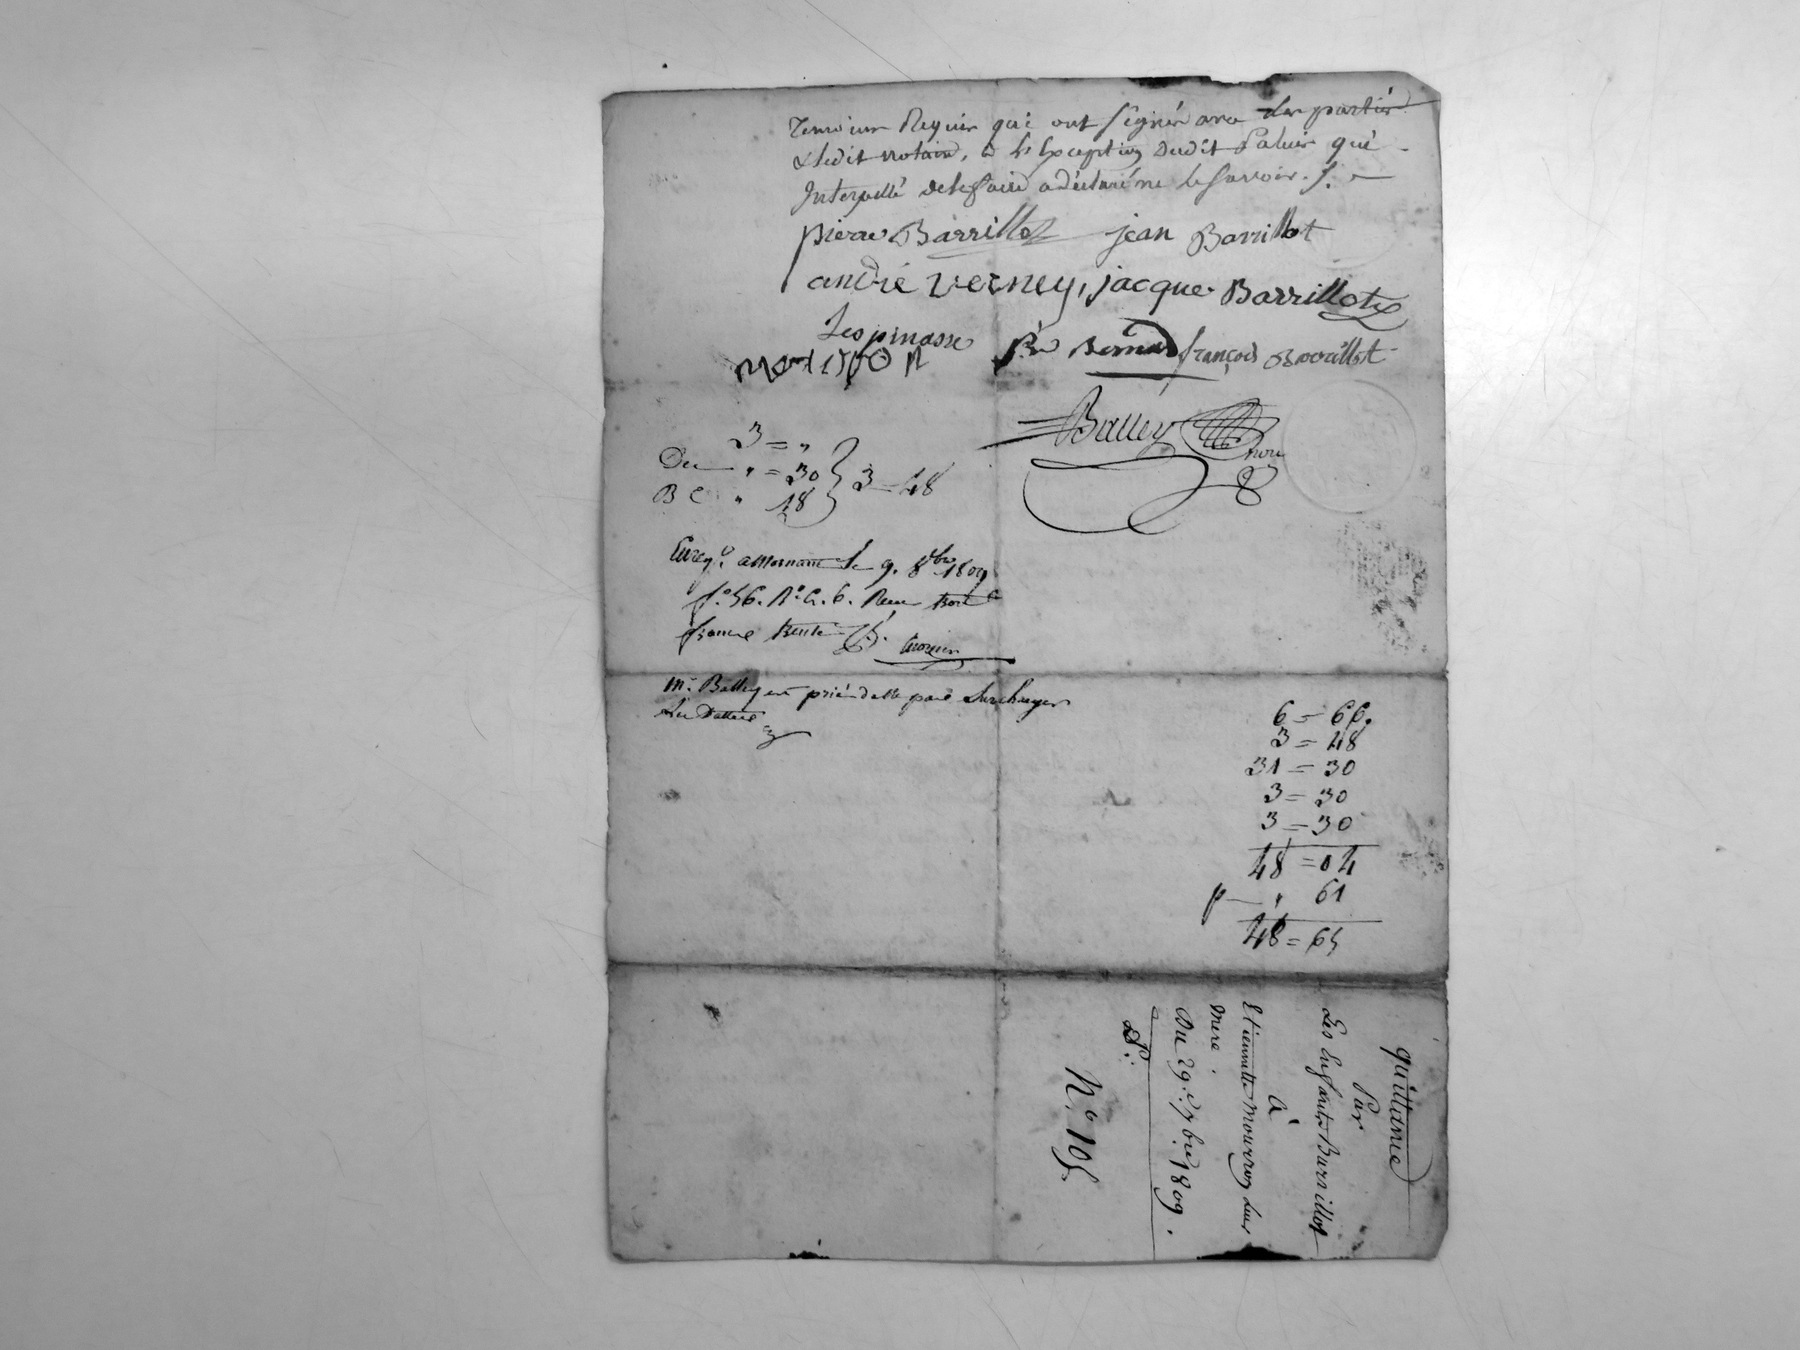 Temoins Requis qui ont signés avec les parties
& ledit notaire, à l'Exception dudit Paluis qui
Interpellé de le faire a déclaré ne le savoir. /. —
pierre Barrillot jean Barrillot
andré verney, jacque Barrillot
Lespinasse Bernard françois Barrillot
Balley
nore
3 = „
De — „ = 30 } 3 = 48
B C „ 18
Enreg.º a Mornant Le 9. 8bre 1809
f.º 56. R.º C. 6. Reçu trois
francs trente
Mr. Balley est prié de ne pas surcharger
Les Dattes
6 = 66.
3 = 48
31 = 30
3 = 30
3 = 30
48 = 04
p — „ 61
48 = 65
quittance
Par
Les Enfants Barrillot
à
Etiennette Mourron Leur
mere.
Du 29. 7bre 1809.
N.º 105